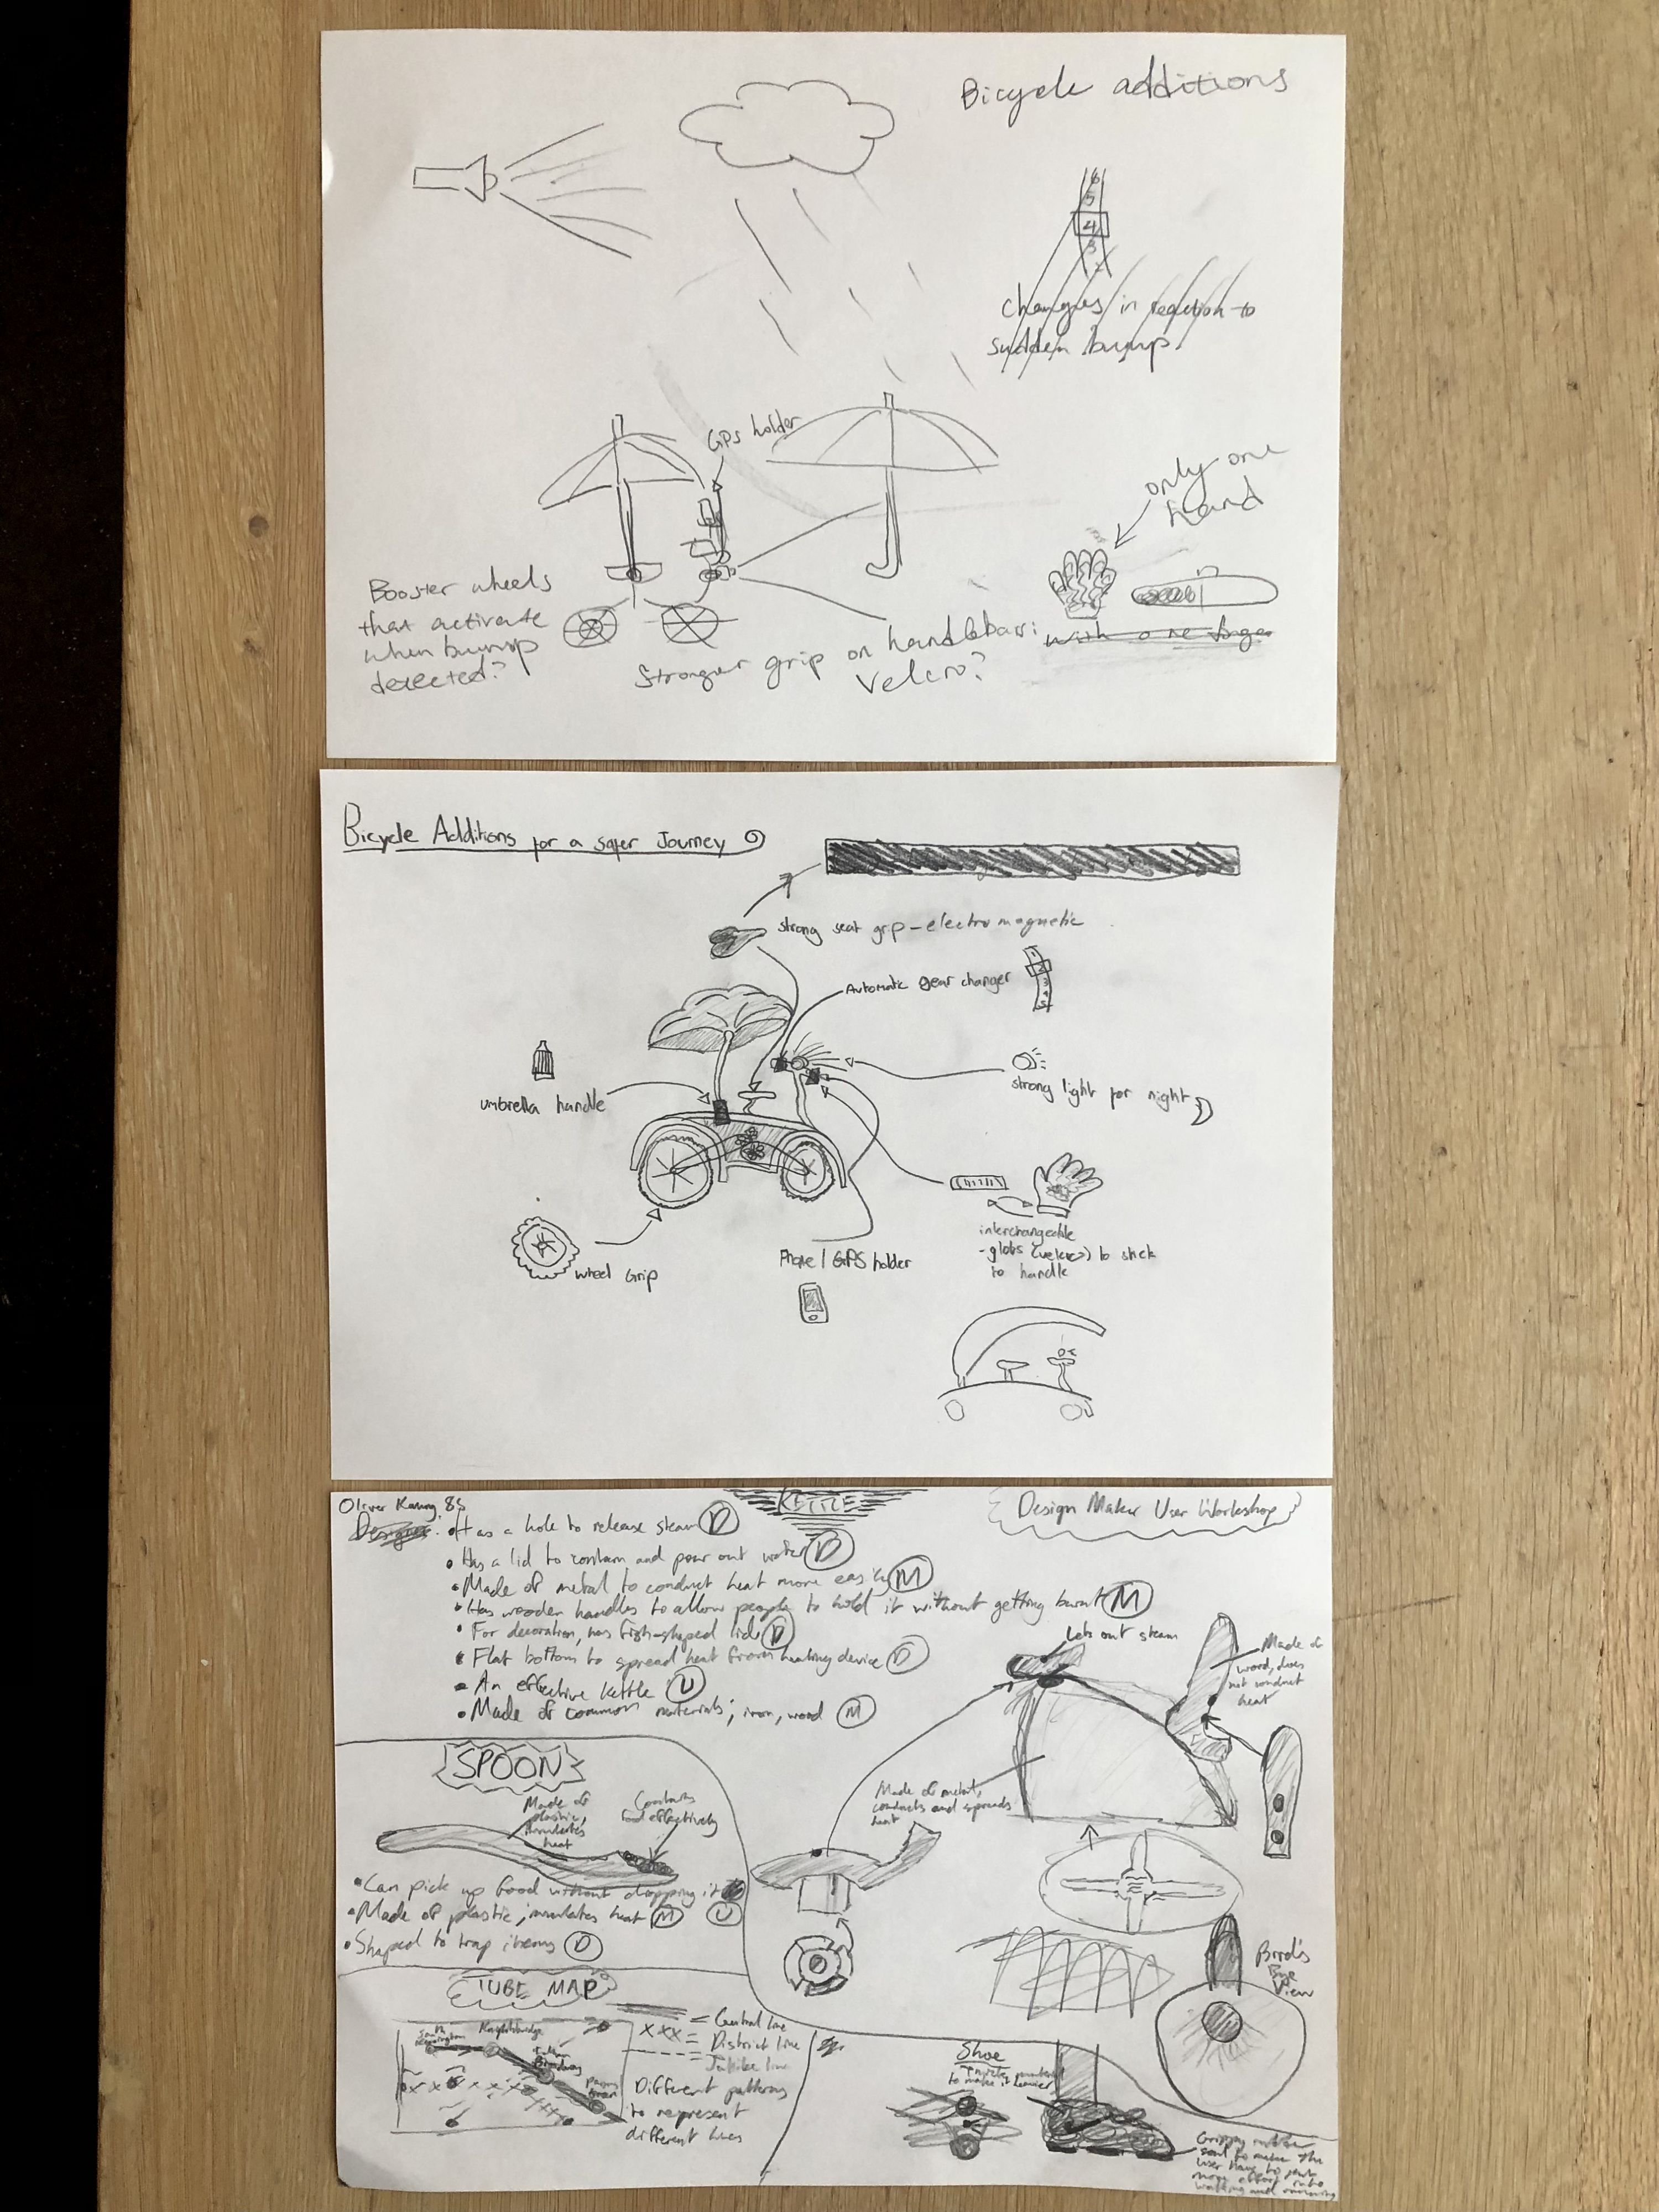 Bicycle additions
6
5
4
3
changes in reaction to
sudden bump
GPS holder
only one
hand
Booster wheels
that activate
when bump
detected?
Stronger grip on handlebars:
Velcro?
with one finger
Bicycle Additions for a safer Journey
strong seat grip - electromagnetic
Automatic gear changer
1
2
3
4
5
umbrella handle
strong light for night
wheel Grip
Phone / GPS holder
interchangeable
- globs (velcro) to stick
to handle
Oliver 8S
KETTLE
Design Maker User Workshop
Designer:
• Has a hole to release steam D
• Has a lid to contain and pour out water D
• Made of metal to conduct heat more easily M
• Has wooden handles to allow people to hold it without getting burnt M
• For decoration, has fish-shaped lid D
• Flat bottom to spread heat from heating device D
• An effective kettle U
• Made of common materials; iron, wood M
Lets out steam
Made of
wood, does
not conduct
heat
Made of metal,
conducts and spreads
heat
SPOON
Made of
plastic,
insulates
heat
Contains
food effectively
• Can pick up food without dropping it
• Made of plastic; insulates heat M U
• Shaped to trap items D
Bird's
Eye
View
TUBE MAP
South
Kensington
Knightsbridge
= Central line
xxx = District line
= Jubilee line
Different patterns
to represent
different lines
Shoe
to make it heavier
Grippy rubber
to make the
user have to push
more effort into
walking and running